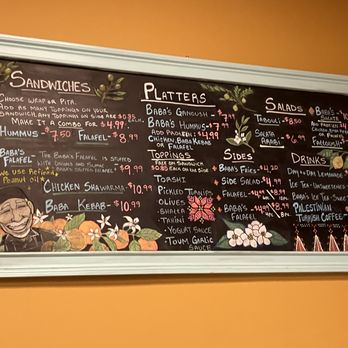 SANDWICHES
CHOOSE WRAP OR PITA.
ADD AS MANY TOPPINGS ON YOUR
SANDWICH, ANY TOPPINGS ON SIDE ARE $0.85
MAKE IT A COMBO FOR $4.99
HUMMUS - $7.50 FALAFEL - $8.99
BABA'S
FALAFEL
THE BABA'S FALAFEL IS STUFFED
WITH ONIONS AND SUMAC
$9.99
WE USE REFINED
PEANUT OIL
CHICKEN SHAWARMA - $10.99
BABA KEBAB - $10.99
PLATTERS
BABA'S GANOUSH - $7.99
BABA'S HUMMUS - $7.99
ADD PROTEIN: $4.99
CHICKEN, BABA KEBAB
OR FALAFEL
TOPPINGS
FREE ON SANDWICH
$0.85 EACH ON THE SIDE
TORSHI
PICKLED TURNIPS
OLIVES
SHATTA
TAHINI
YOGURT SAUCE
TOUM GARLIC
SAUCE
SALADS
TABOULI - $8.50
SALATA
ARABI
SIDES
BABA'S FRIES - $4.20
SIDE SALAD - $4.99
FALAFEL
BABA'S
FALAFEL
DRINKS
DAY & DAY LEMONADE
ICE TEA - UNSWEETENED
BABA'S ICE TEA - SWEET
PALESTINIAN
TURKISH COFFEE